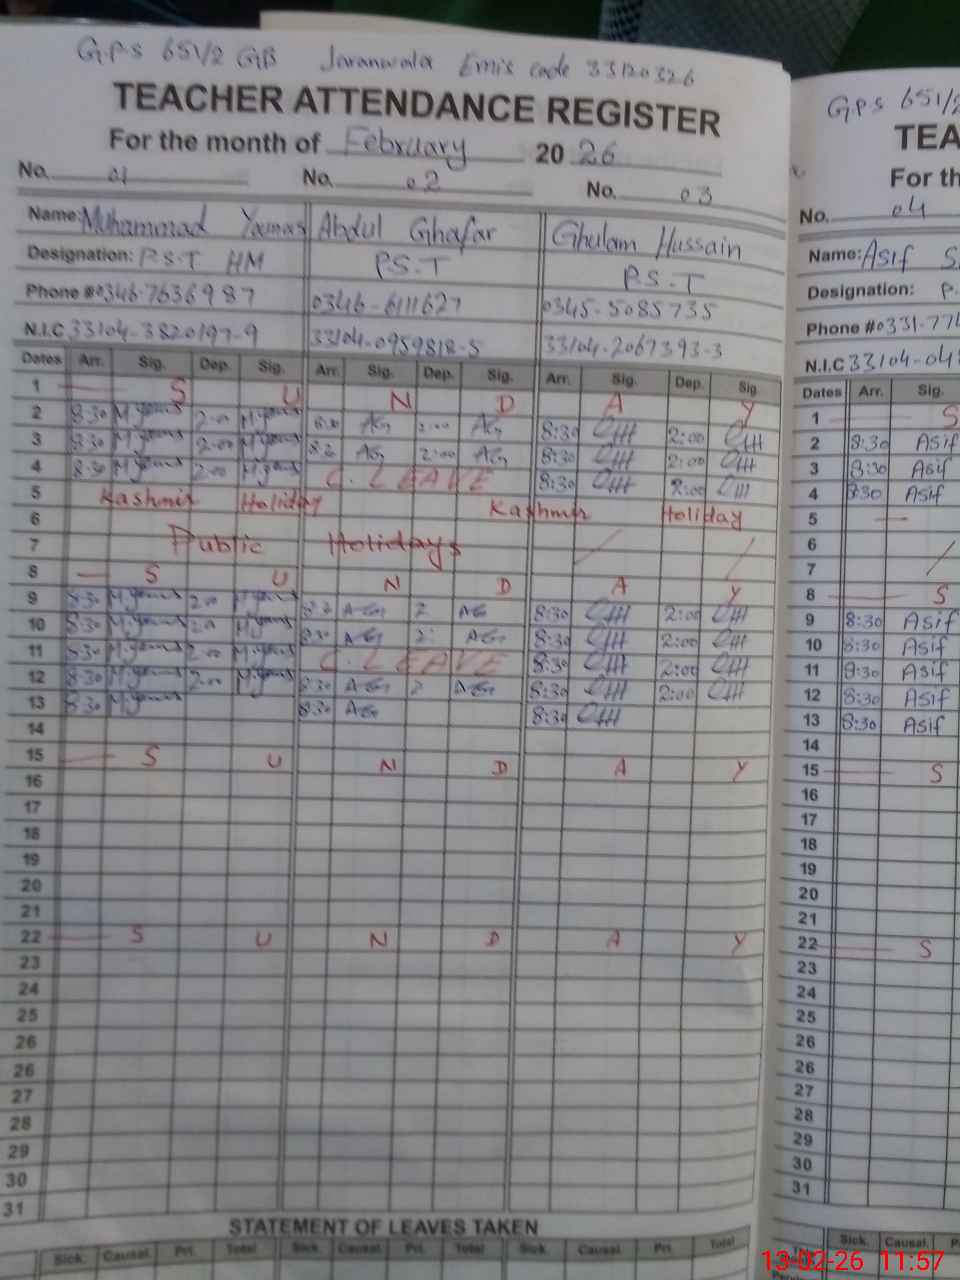 G.P.S 651/2 GB Jaranwala Emis code 33120326
TEACHER ATTENDANCE REGISTER
For the month of February 2026
No. 01 No. 02 No. 03
Name: Muhammad Younas Abdul Ghafar Ghulam Hussain
Designation: P.S.T HM P.S.T P.S.T
Phone # 0346-7636987 0346-6111627 0345-5085735
N.I.C 33104-3820197-9 33104-0959818-5 33104-2067393-3
Dates Arr. Sig. Dep. Sig. Arr. Sig. Dep. Sig. Arr. Sig. Dep. Sig.
1 S U N D A Y
2 8:30 M.younas 2:00 M.younas 8:30 AG 2:00 AG 8:30 GH 2:00 GH
3 8:30 M.younas 2:00 M.younas 8:30 AG 2:00 AG 8:30 GH 2:00 GH
4 8:30 M.younas 2:00 M.younas C. LEAVE 8:30 GH 2:00 GH
5 Kashmir Holiday Kashmir Holiday
6
7 Public Holidays
8 S U N D A Y
9 8:30 M.younas 2:00 M.younas 8:30 AG 2 AG 8:30 GH 2:00 GH
10 8:30 M.younas 2:00 M.younas 8:30 AG 2: AG 8:30 GH 2:00 GH
11 8:30 M.younas 2:00 M.younas C. LEAVE 8:30 GH 2:00 GH
12 8:30 M.younas 2:00 M.younas 8:30 AG 2 AG 8:30 GH 2:00 GH
13 8:30 M.younas 8:30 AG 8:30 GH
14
15 S U N D A Y
16
17
18
19
20
21
22 S U N D A Y
23
24
25
26
26
27
28
29
30
31
STATEMENT OF LEAVES TAKEN
Sick. Causal. Pri. Total Sick. Causal. Pri. Total Sick. Causal. Pri. Total
G.P.S 651/2
TEA
For th
No. 04
Name: Asif S
Designation: P.
Phone # 0331-774
N.I.C 33104-04
Dates Arr. Sig.
1 S
2 8:30 Asif
3 8:30 Asif
4 8:30 Asif
5
6
7
8 S
9 8:30 Asif
10 8:30 Asif
11 8:30 Asif
12 8:30 Asif
13 8:30 Asif
14
15 S
16
17
18
19
20
21
22 S
23
24
25
26
26
27
28
29
30
31
Sick. Causal. P
13-02-26 11:57